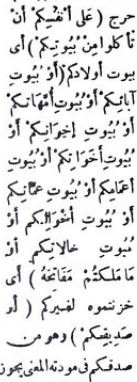 حرج (على أنفسكم أن
تأكلوا من بيوتكم) أى
بيوت أولادكم (أو بيوت
آبائكم أو بيوت أمهاتكم
أو بيوت إخوانكم أو
بيوت أخواتكم أو بيوت
أعمامكم أو بيوت عماتكم
أو بيوت أخوالكم أو
بيوت خالاتكم أو
ما ملكتم مفاتحه) أى
خزنتموه لغيركم (أو
صديقكم) وهو من
صدقكم فى مودته المعنى يجوز